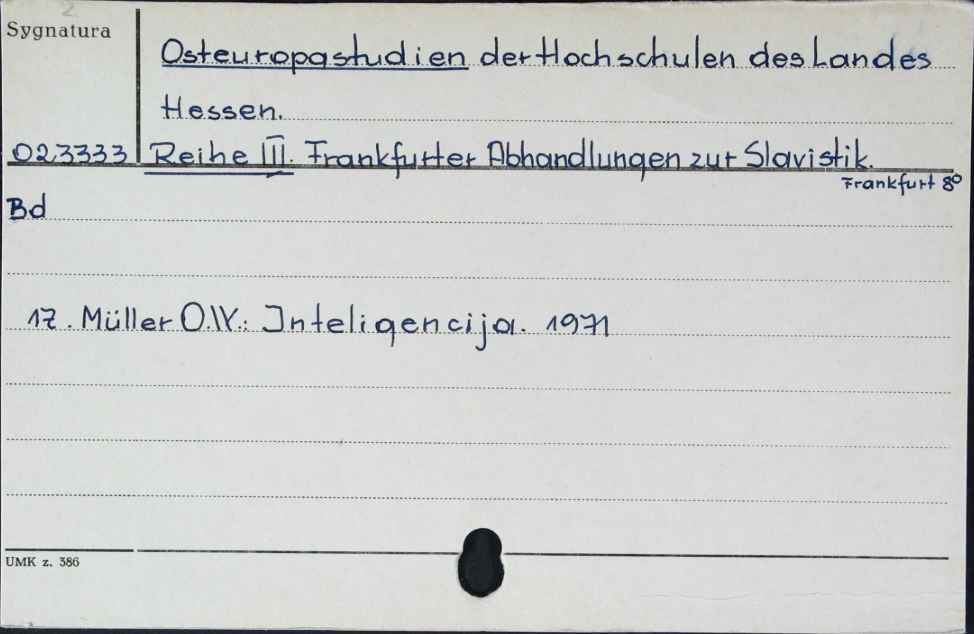 2.
Sygnatura
Osteuropastudien der Hochschulen des Landes
Hessen.
023333 Reihe III. Frankfurter Abhandlungen zur Slavistik.
Frankfurt 8°
Bd
17. Müller O.W.: Inteligencija. 1971
UMK z. 386